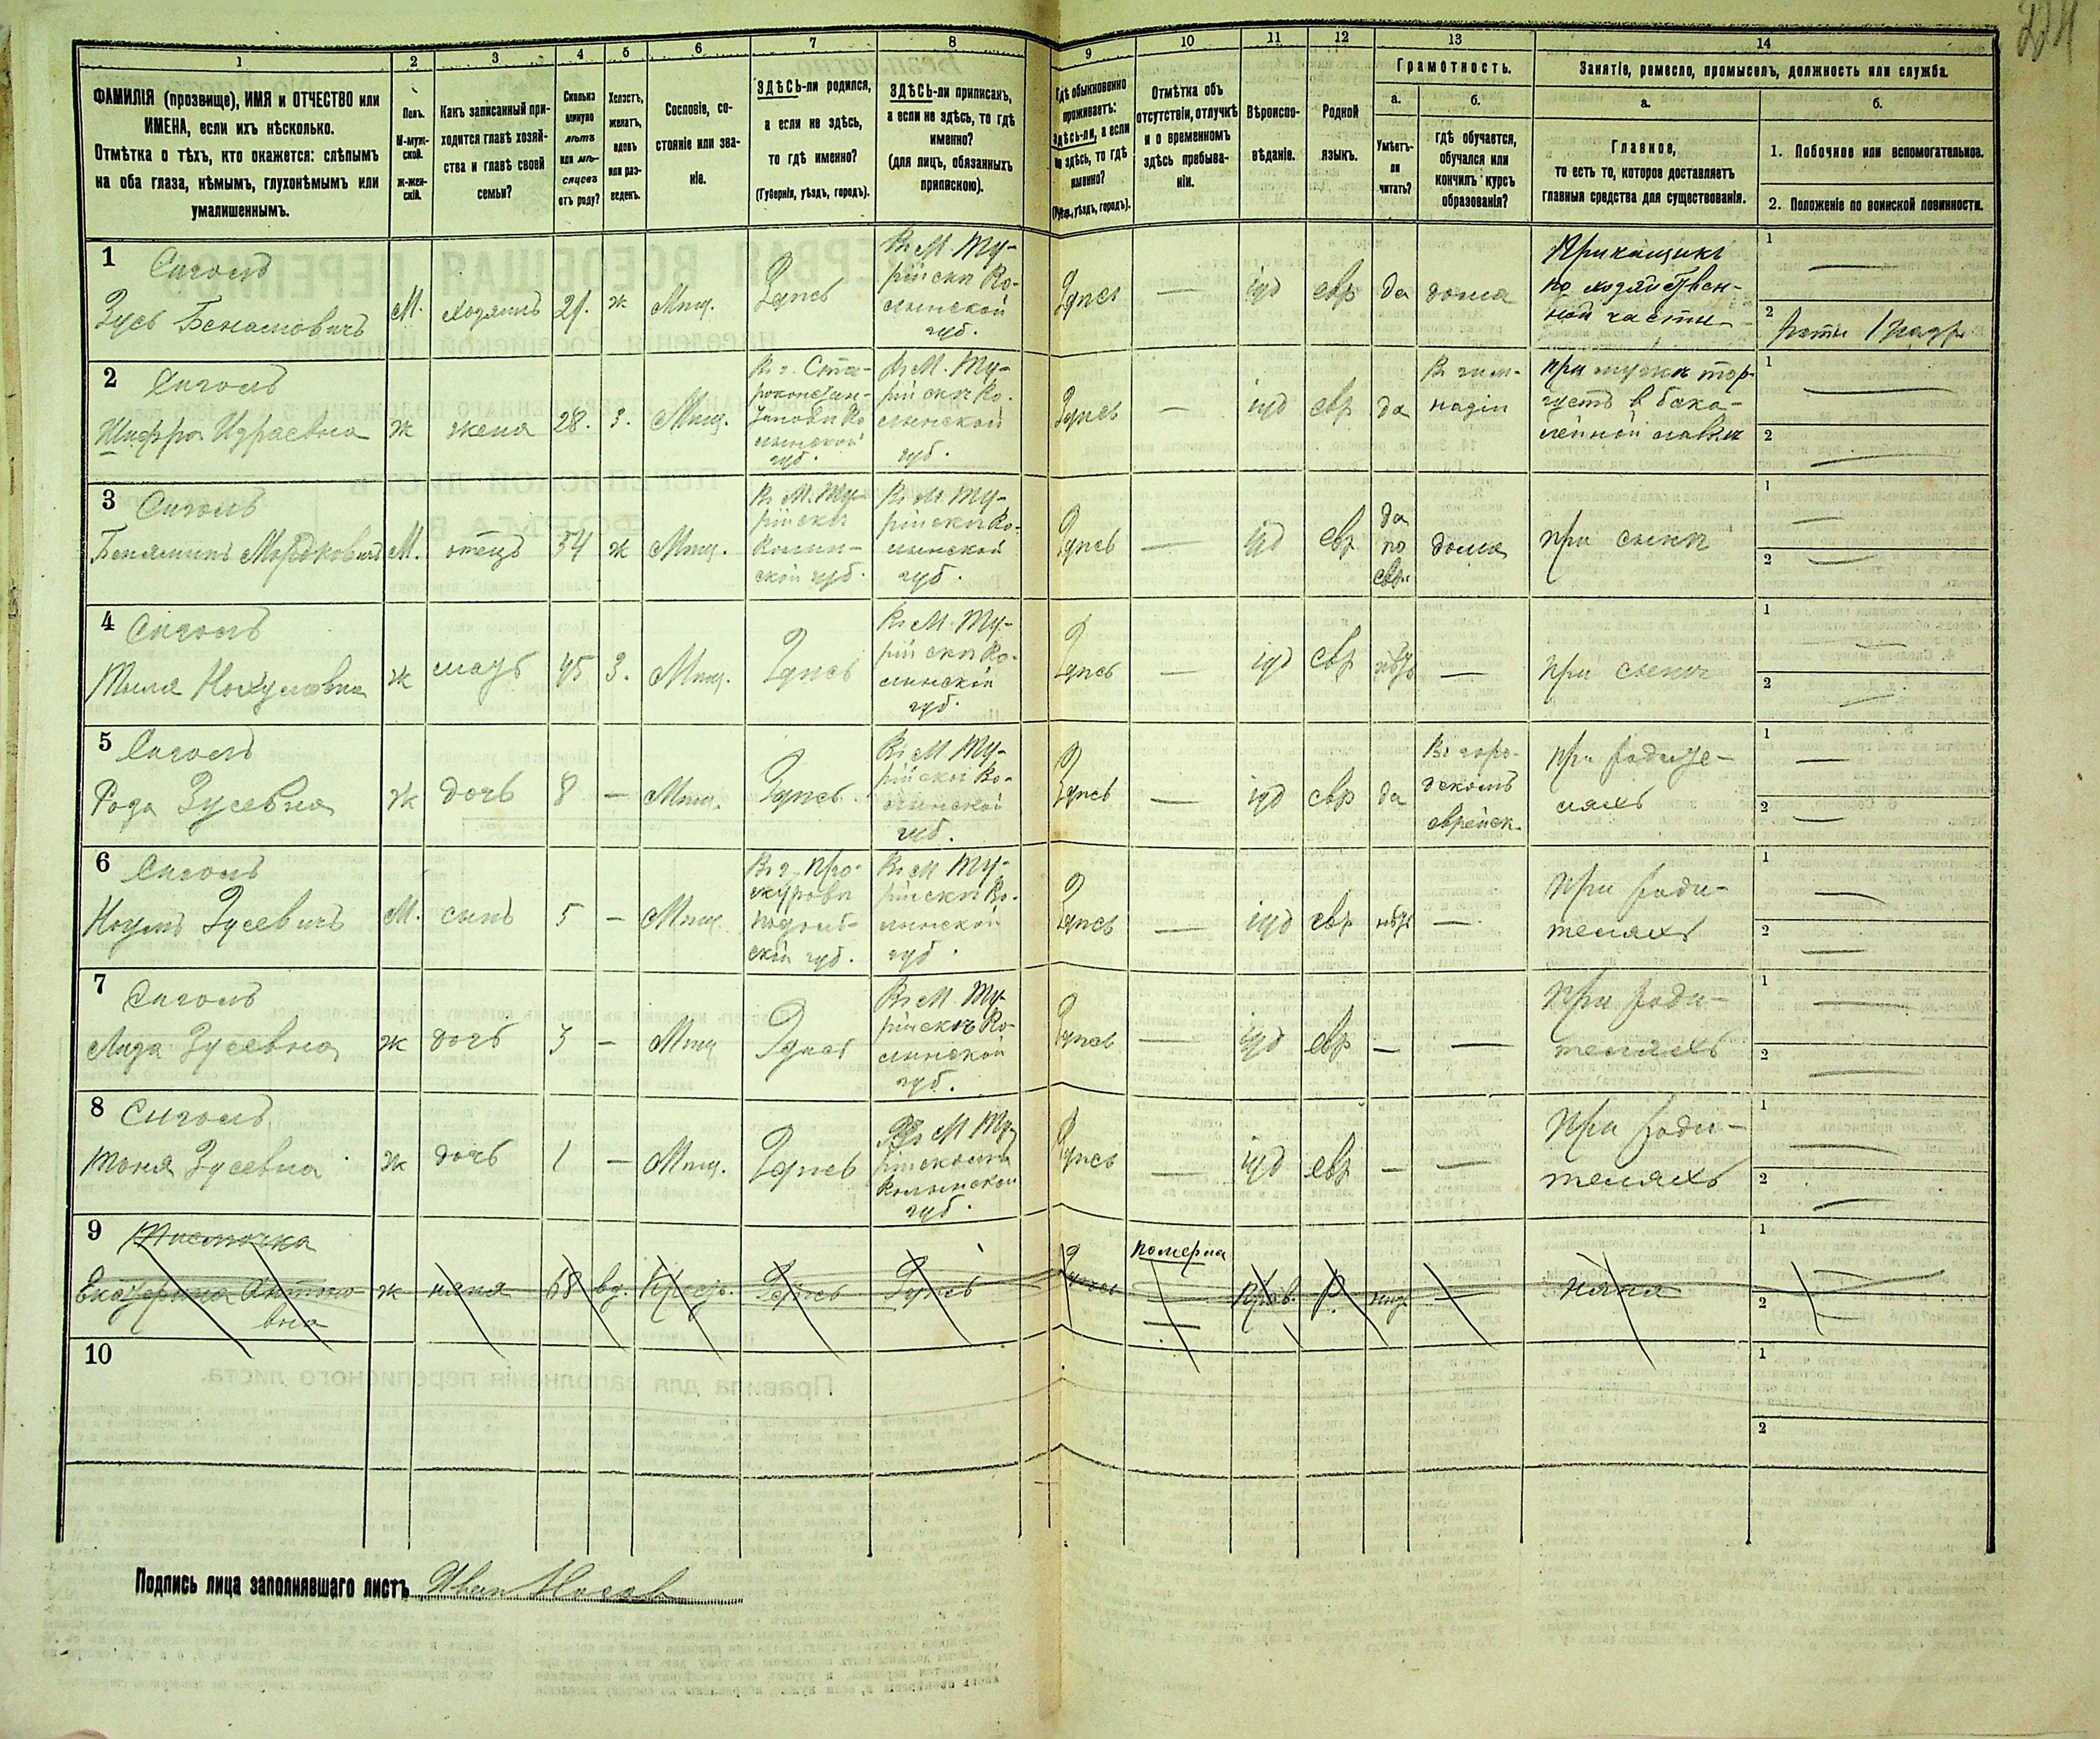 224
1
2
3
4
5
6
7
8
9
10
11
12
13
14
ФАМИЛІЯ (прозвище), ИМЯ и ОТЧЕСТВО или
ИМЕНА, если ихъ нѣсколько.
Отмѣтка о тѣхъ, кто окажется: слѣпымъ
на оба глаза, нѣмымъ, глухонѣмымъ или
умалишеннымъ.
Полъ.
М-муж-
ской.
Ж-жен-
скій.
Какъ записанный при-
ходится главѣ хозяй-
ства и главѣ своей
семьи?
Сколько
минуло
лѣтъ
или мѣ-
сяцевъ
отъ роду?
Холостъ,
женатъ,
вдовъ
или раз-
веденъ.
Сословіе, со-
стояніе или зва-
ніе.
ЗДѢСЬ-ли родился,
а если не здѣсь,
то гдѣ именно?
(Губернія, уѣздъ, городъ).
ЗДѢСЬ-ли приписанъ,
а если не здѣсь, то гдѣ
именно?
(для лицъ, обязанныхъ
припискою).
Гдѣ обыкновенно
проживаетъ:
Здѣсь-ли, а если
не здѣсь, то гдѣ
именно?
(Губерн., уѣздъ, городъ).
Отмѣтка объ
отсутствіи, отлучкѣ
и о временномъ
здѣсь пребыва-
ніи.
Вѣроиспо-
вѣданіе.
Родной
языкъ.
Грамотность.
а.
Умѣетъ-
ли
читать?
б.
гдѣ обучается,
обучался или
кончилъ курсъ
образованія?
Занятіе, ремесло, промыселъ, должность или служба.
а.
Главное,
то есть то, которое доставляетъ
главныя средства для существованія.
б.
1. Побочное или вспомогательное.
2. Положеніе по воинской повинности.
1
Сиголъ
Зусь Беньаминовичъ
М. хозяинъ 29. ж Мѣщ. Здѣсь
Въ М. Ту-
рійскѣ Во-
лынской
губ.
Здѣсь — іуд евр да дома
Прикащикъ
по хозяйствен-
ной части
1 —
2
2
Сиголъ
Шифра Израевна
ж жена 28. з. Мѣщ.
Въ г. Ста-
роконстан-
тиновѣ Во
лынской
губ.
Въ М. Ту-
рійскѣ Во-
лынской
губ.
Здѣсь — іуд евр да
Въ гим-
назіи
при мужѣ тор-
гуетъ в бака-
лейной лавкѣ
1 —
2 —
3
Сиголъ
Беняминъ Мордковичъ
М. отецъ 54 ж Мѣщ.
Въ М. Ту-
рійскѣ
Волын-
ской губ.
Въ М. Ту-
рійскѣ Во-
лынской
губ.
Здѣсь — іуд евр
да
по
евр.
дома
при сынѣ
1 —
2 —
4
Сиголъ
Тыля Нохумовна
ж мать 45 з. Мѣщ. Здѣсь
Въ М. Ту-
рійскѣ Во-
лынскій
губ.
Здѣсь — іуд евр нѣтъ —
при сынѣ
1 —
2 —
5
Сиголъ
Роза Зусевна
ж дочь 8 — Мѣщ. Здѣсь
Въ М Ту-
рійскѣ Во-
лынской
губ.
Здѣсь — іуд евр да
Въ горо-
дскомъ
еврейск.
При родите-
ляхъ
1 —
2 —
6
Сиголъ
Ноумъ Зусевичъ
М. сынъ 5 — Мѣщ
Въ г. Про-
скуровѣ
Подоль-
ской губ.
Въ М Ту-
рійскѣ Во-
лынской
губ.
Здѣсь — іуд евр нѣтъ —
При роди-
теляхъ
1 —
2 —
7
Сиголъ
Лиза Зусевна
ж дочь 3 — Мѣщ Здѣсь
Въ М. Ту-
рійскѣ Во-
лынской
губ.
Здѣсь — іуд евр — —
При роди-
теляхъ
1 —
2 —
8
Сиголъ
Тоня Зусевна
ж дочь 1 — Мѣщ. Здѣсь
Въ М Ту-
рійскомъ
Волынской
губ.
Здѣсь — іуд евр — —
При роди-
теляхъ
1 —
2 —
9
Екатерина Антоно-
вна
ж няня 68 вд. Крест. Здѣсь Здѣсь
Здѣсь
померла
—
Прав. Р. нѣтъ —
няня
1 —
2 —
10
1
2
Подпись лица заполнявшаго листъ Иван Носов